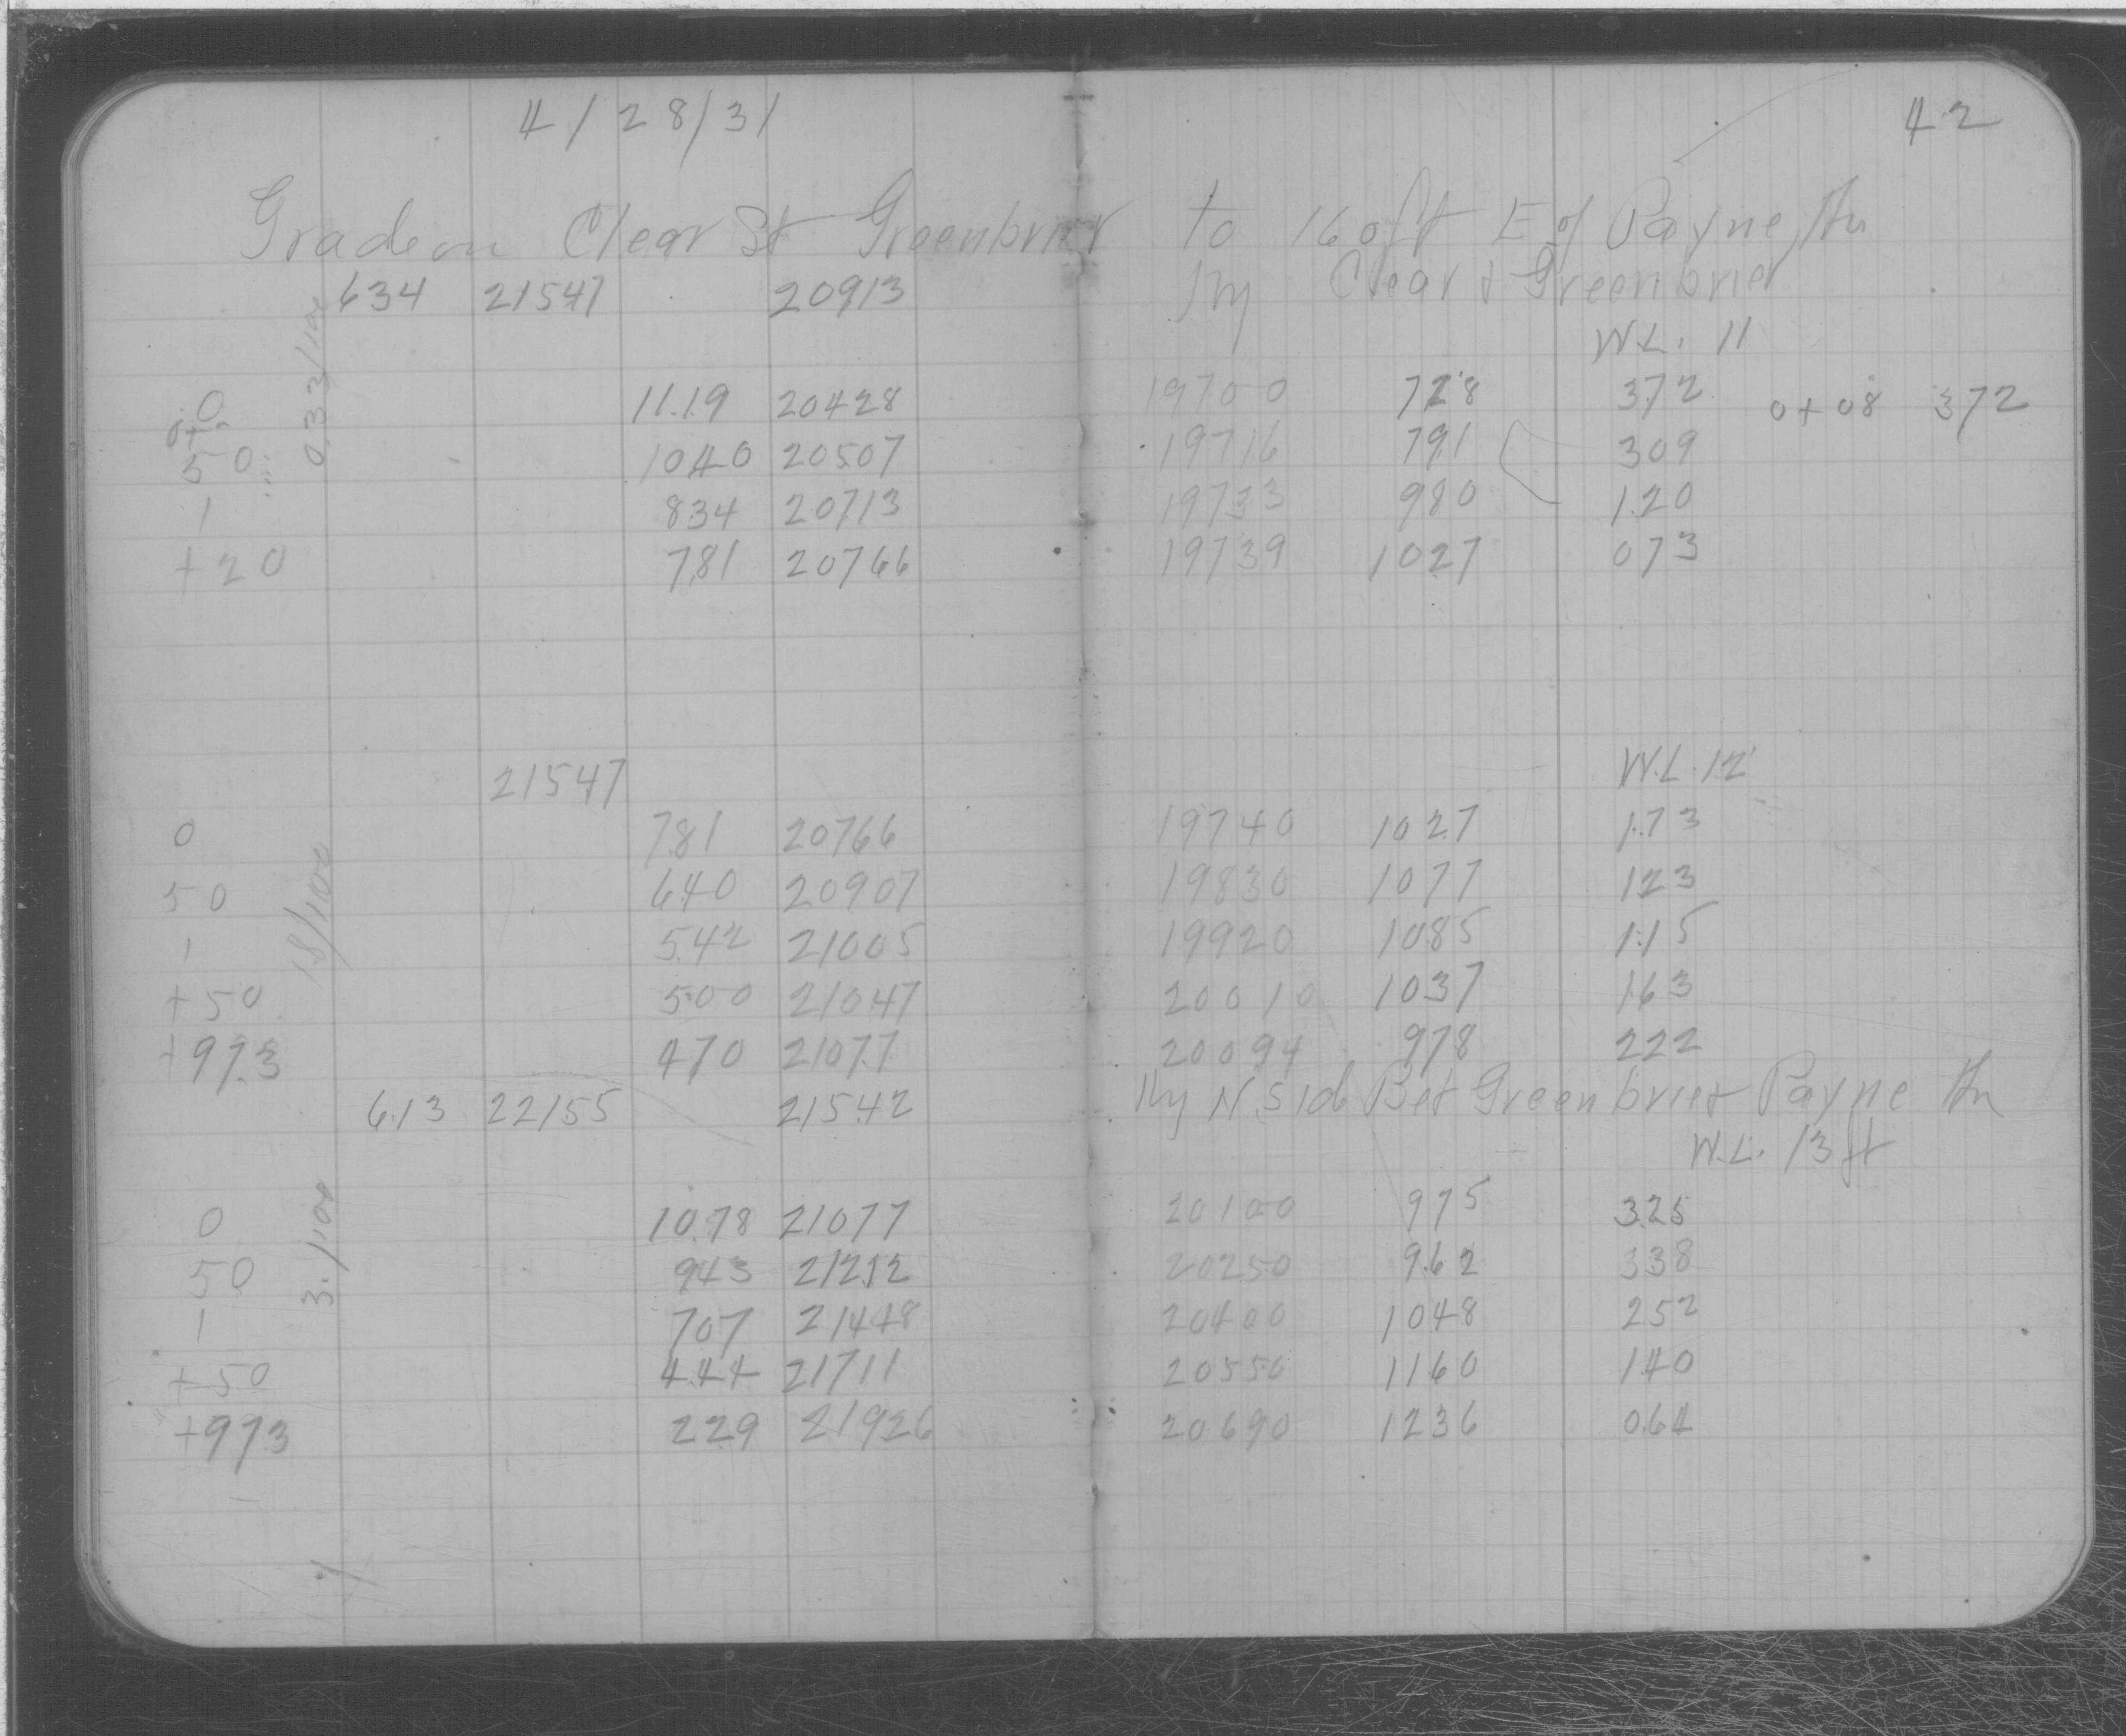 4/28/31 42
Grade on Clear St Greenbrier to 160ft E of Payne Av
634 21547 20913 Hy Clear & Greenbrier
W.L. 11
0 11.19 20428 19700 728 372 0+08 372
50 1040 20507 19716 791 309
1 834 20713 19733 980 1.20
+20 781 20766 19739 1027 073
0.33/100
21547 W.L. 12
0 781 20766 19740 1027 1.73
50 640 20907 19830 1077 123
1 542 21005 19920 1085 1.15
+50 500 21047 20010 1037 163
+97.3 470 21077 20094 978 222
1.8/100
6.13 22155 21542 Hy N Side Bet Greenbrier Payne Av
W.L. 13 ft
0 10.78 21077 20100 975 325
50 943 21212 20250 9.62 338
1 707 21448 20400 1048 252
+50 444 21711 20550 1160 140
+973 229 21926 20690 1236 0.64
3./100